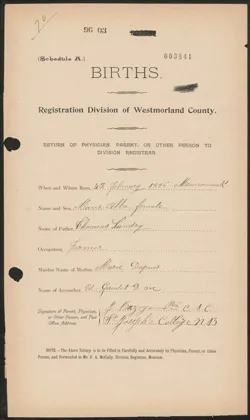 96 03
003841
(Schedule A.)
BIRTHS.
Registration Division of Westmorland County.
RETURN OF PHYSICIAN, PARENT, OR OTHER PERSON TO
DIVISION REGISTRAR.
When and Where Born, 4th February 1895
Name and Sex, Marie female
Name of Father, Landry
Occupation, Farmer
Maiden Name of Mother, Marie Dupuis
Name of Accoucher, Gaudet
Signature of Parent, Physician,
or Other Person, and Post
Office Address.
St Joseph's College N.B.
NOTE.—The Above Return is to be Filled in Carefully and Accurately by Physician, Parent or Other
Person, and Forwarded to Division Registrar, Moncton.